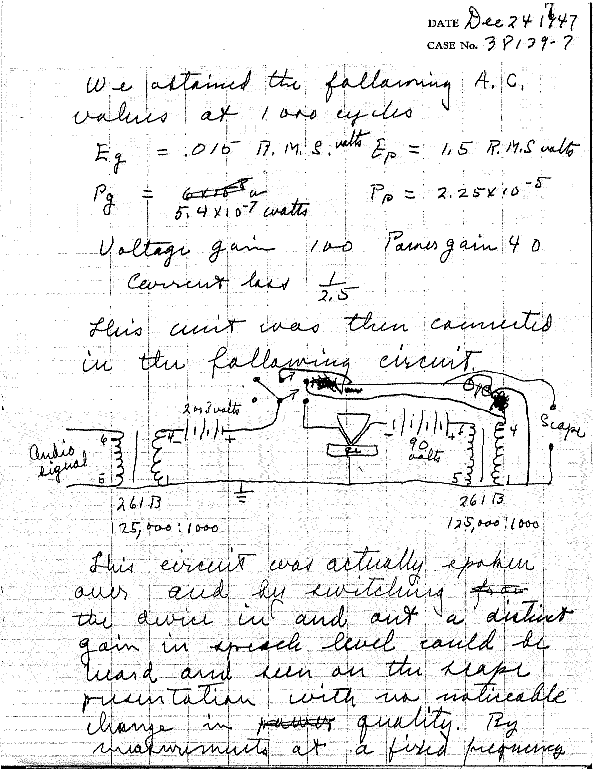 DATE Dec 24 1947
CASE No. 38139-7
We obtained the following A.C.
values at 1000 cycles
Eg = .015 R.M.S. volts Ep = 1.5 R.M.S volts
Pg = 5.4 x 10-7 watts Pp = 2.25 x 10-5
Voltage gain 100 Power gain 40
Current loss 1/2.5
This unit was then connected
in the following circuit.
2 or 3 volts
Scope
Audio
signal
6
4
- +
90
volts
- +
6
4
5
1
5
1
261B
261B
125,000:1000
125,000:1000
This circuit was actually spoken
over and by switching
the device in and out a distinct
gain in speech level could be
heard and seen on the scope
presentation with no noticeable
change in quality. By
measurements at a fixed frequency